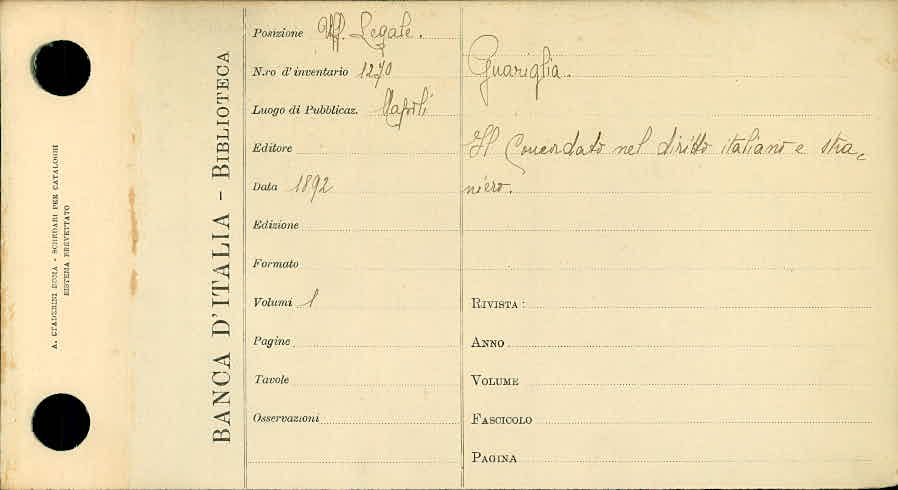 A. STADERINI ROMA - SCHEDARI PER CATALOGHI
SISTEMA BREVETTATO
BANCA D'ITALIA - BIBLIOTECA
Posizione Uff. Legale.
N.ro d'inventario 1270
Luogo di Pubblicaz. Napoli
Editore
Data 1892
Edizione
Formato
Volumi 1
Pagine
Tavole
Osservazioni
Guariglia.
Il Concordato nel diritto italiano e stra-
niero.
RIVISTA:
ANNO
VOLUME
FASCICOLO
PAGINA